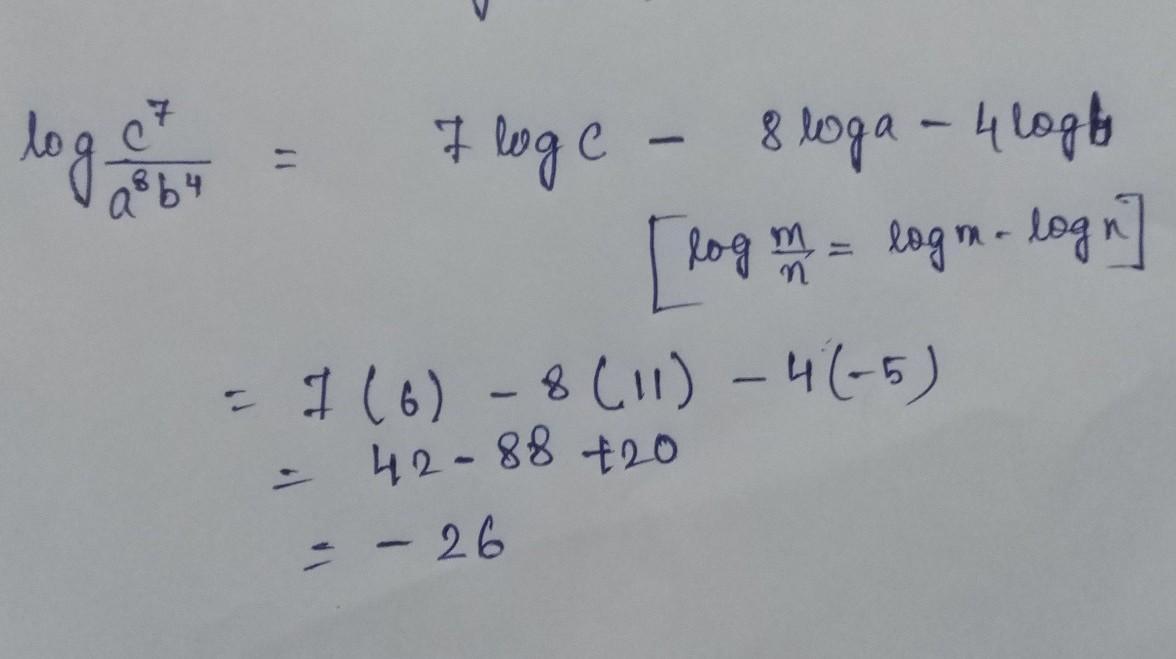 log c⁷/a⁸b⁴ = 7 log c - 8 log a - 4 log b
[log m/n = log m - log n]
= 7 (6) - 8 (11) - 4 (-5)
= 42 - 88 + 20
= - 26